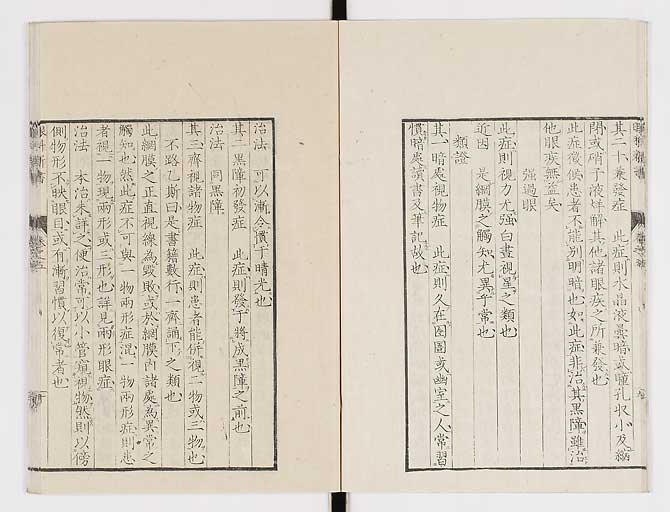 其二十兼發症　此症則水晶液曇暗或瞳孔收小及縮
閉或硝子液烊解其他諸眼疾之所兼發也
此症後俱患者不能別明暗也如此症非治其黑障雖治
他眼疾無益矣
強過眼
此症則視力尤强白晝視星之類也
近因　是網膜之觸知尤異乎常也
類證
其一暗處視物症　此症則久在囹圄或幽室之人常習
慣暗處讀書及筆記故也
治法　可以漸令慣于晴光也
其二黑障初發症　此症則發于將成黑障之前也
治法　同黑障
其三齊視諸物症　此症則患者能併視二物或三物也
不路乙斯曰是書籍數行一齊誦下之類也
此網膜之正直視線為毀敗或於網膜內諸處為異常之
觸知也然此症不可與一物兩形症混一物兩形症則患
者視一物現兩形或三形也詳見兩形眼症
治法　本治未詳之便治常可以小管窺視物然則以傍
側物形不映眼目或有漸習慣以復常者也